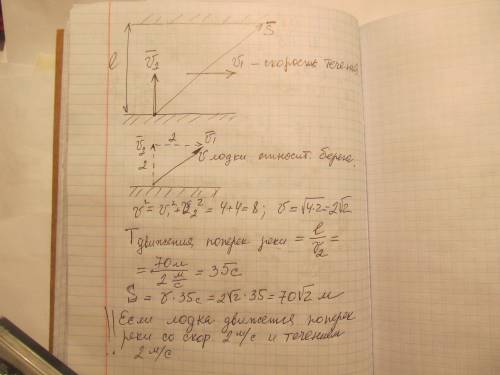 S̄
ℓ
v̄₂
v̄₁ – скорость течения
2
v̄₂ v̄₁
2
v лодки относит. берега.
v² = v₁² + v₂² = 4+4 = 8; v = √4·2 = 2√2
T движения поперек реки = ℓ/v₂ =
= 70м / 2 м/с = 35с
S = v · 35с = 2√2 · 35 = 70√2 м
Если лодка движется поперек
реки со скор. 2 м/с и течением
2 м/с